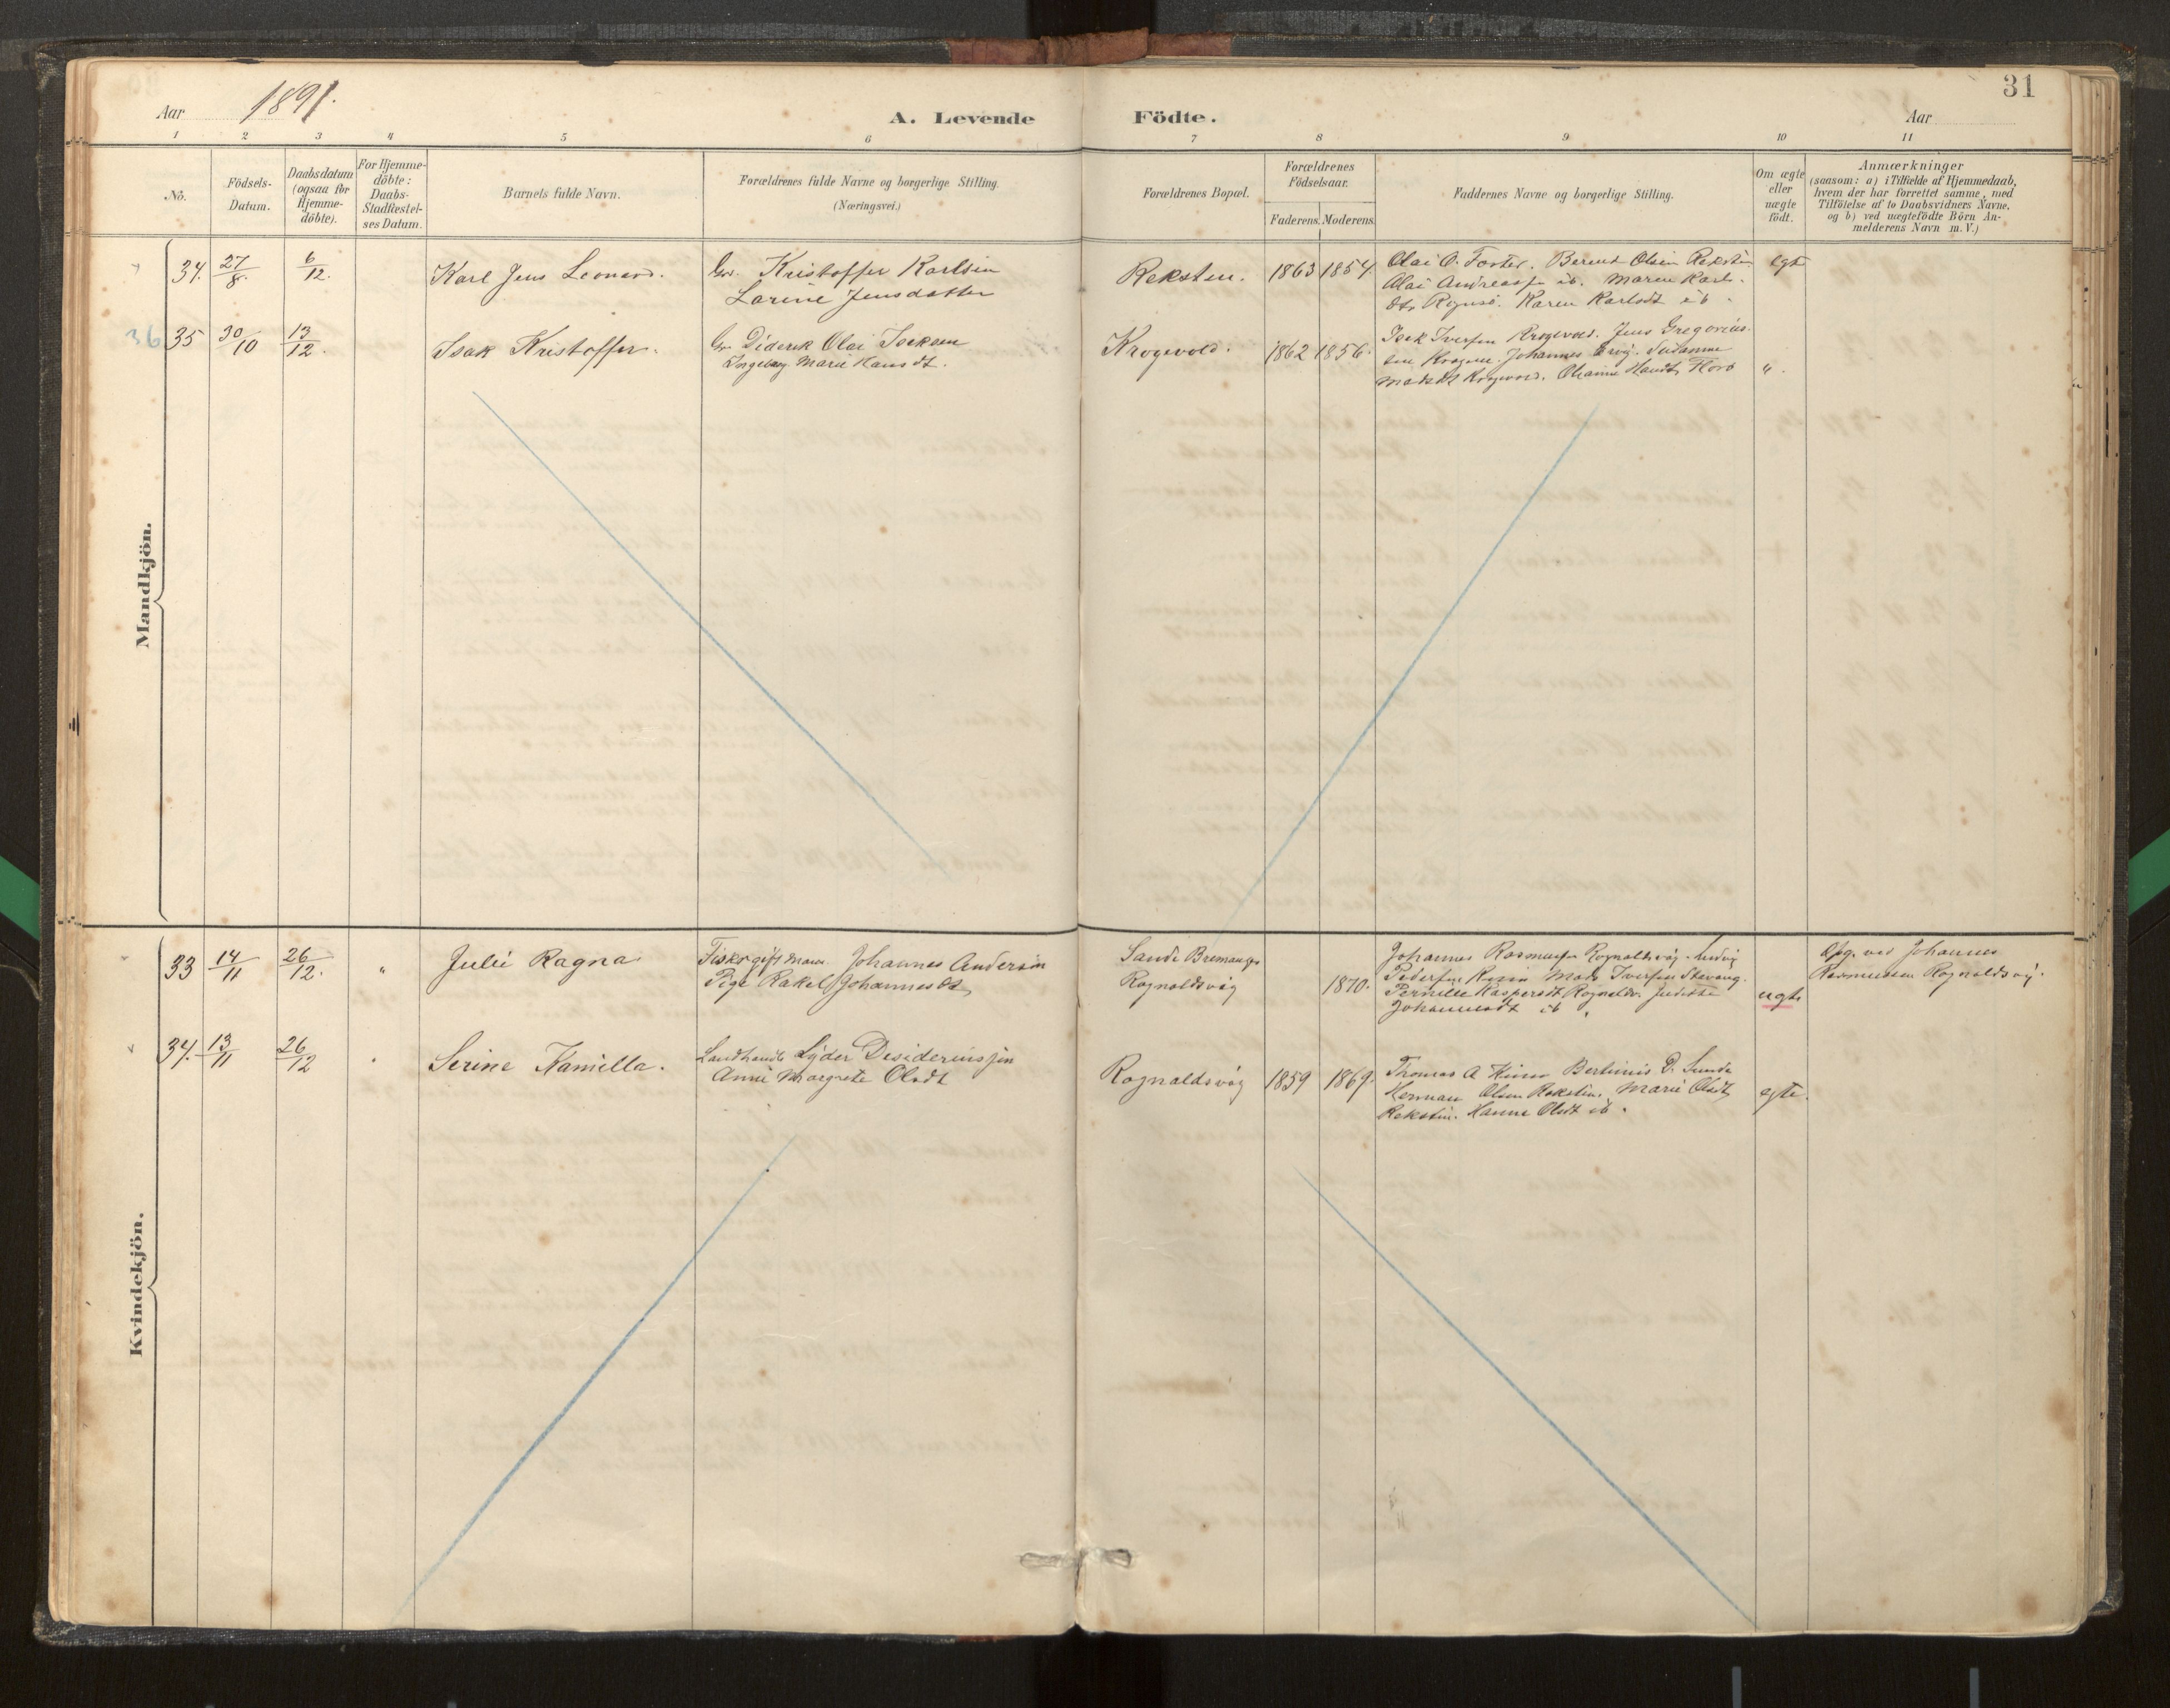 31
Aar 1891.
A. Levende Födte.
Aar
1 2 3 4 5 6 7 8 9 10 11
No.
Födsels-
Datum.
Daabsdatum
(ogsaa for
Hjemme-
döbte).
For Hjemme-
döbte:
Daabs-
Stadfæstel-
ses Datum.
Barnets fulde Navn.
Forældrenes fulde Navne og borgerlige Stilling.
(Næringsvei.)
Forældrenes Bopæl.
Forældrenes
Födselsaar.
Faderens. Moderens.
Faddernes Navne og borgerlige Stilling.
Om ægte
eller
uægte
födt.
Anmærkninger
(saasom: a) i Tilfælde af Hjemmedaab,
hvem der har forrettet samme, med
Tilföielse af to Daabsvidners Navne,
og b) ved uægtefödte Börn An-
melderens Navn m. V.)
Mandkjön.
34. 27/8. 6/12.
Karl Jens Leonard.
Gr. Kristoffer Karlsen
Larine Jensdatter
Reksten.
1863 1854.
Olai O. Berent Olsen Reksten
Olai Andreassen ib. Maren Karls-
dtr Karen Karlsdt ib.
egte
36
35 30/10 13/12.
Isak Kristoffer.
Gr. Diderik Olai Isaksen
Ingeborg Marie Hansdt.
Krogevold.
1862 1856.
Isak Iversen Krogevold. Jens Gregorius-
sen Johannes Susanne
Krogevold. Florö
"
Kvindekjön.
33 14/11 26/12. "
Julie Ragna
Fisker gift Mann Johannes Andersen
Pige Rakel Johannesdt
Sande Bremanger
Rognaldsvåg
1870.
Johannes Rasmussen Rognaldsvåg. Ludvig
Pedersen Mads Iversen Stavang.
Pernille Kaspersdt Rognaldsv.
Johannesdt ib.
uegte
Opg. ved Johannes
Rasmussen Rognaldsvåg.
34. 13/11 26/12 "
Serine Kamilla.
Landhandl. Lyder Desideriussen
Anne Margrete Olsdt
Rognaldsvåg
1859 1869.
Thomas A. Bertinus D. Sunde
Herman Olsen Reksten. Marie Olsdt
Reksten. Hanna Olsdt ib.
egte.